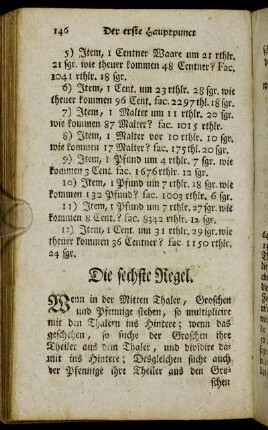 146 Der erste Hauptpunct
5) Item, 1 Centner Waare um 21 rthlr.
21 sgr. wie theuer kommen 48 Centner? Fac.
1041 rthlr. 18 sgr.
6) Item, 1 Cent. um 23 rthlr. 28 sgr. wie
theuer kommen 96 Cent. fac. 2297 thl. 18 sgr.
7) Item, 1 Malter um 11 rthlr. 20 sgr.
wie kommen 87 Malter? fac. 1015 rthlr.
8) Item, 1 Malter vor 10 rthlr. 10 sgr.
wie kommen 17 Malter? fac. 175 thl. 20 sgr.
9) Item, 1 Pfund um 4 rthlr. 7 sgr. wie
kommen 3 Cent. fac. 1676 rthlr. 12 sgr.
10) Item, 1 Pfund um 7 rthlr. 18 sgr. wie
kommen 132 Pfund? fac. 1003 rthlr. 6 sgr.
11) Item, 1 Pfund um 7 rthlr. 27 sgr. wie
kommen 8 Cent.? fac. 8342 rthlr. 12 sgr.
12) Item, 1 Cent. um 31 rthlr. 29 sgr. wie
theuer kommen 36 Centner? fac. 1150 rthlr.
24 sgr.
Die sechste Regel.
Wenn in der Mitten Thaler, Groschen
und Pfennige stehen, so multiplicire
mit den Thalern ins Hintere; wenn das
geschehen, so suche der Groschen ihre
Theiler aus dem Thaler, und dividire da-
mit ins Hintere; Desgleichen suche auch
der Pfennige ihre Theiler aus den Gro-
schen